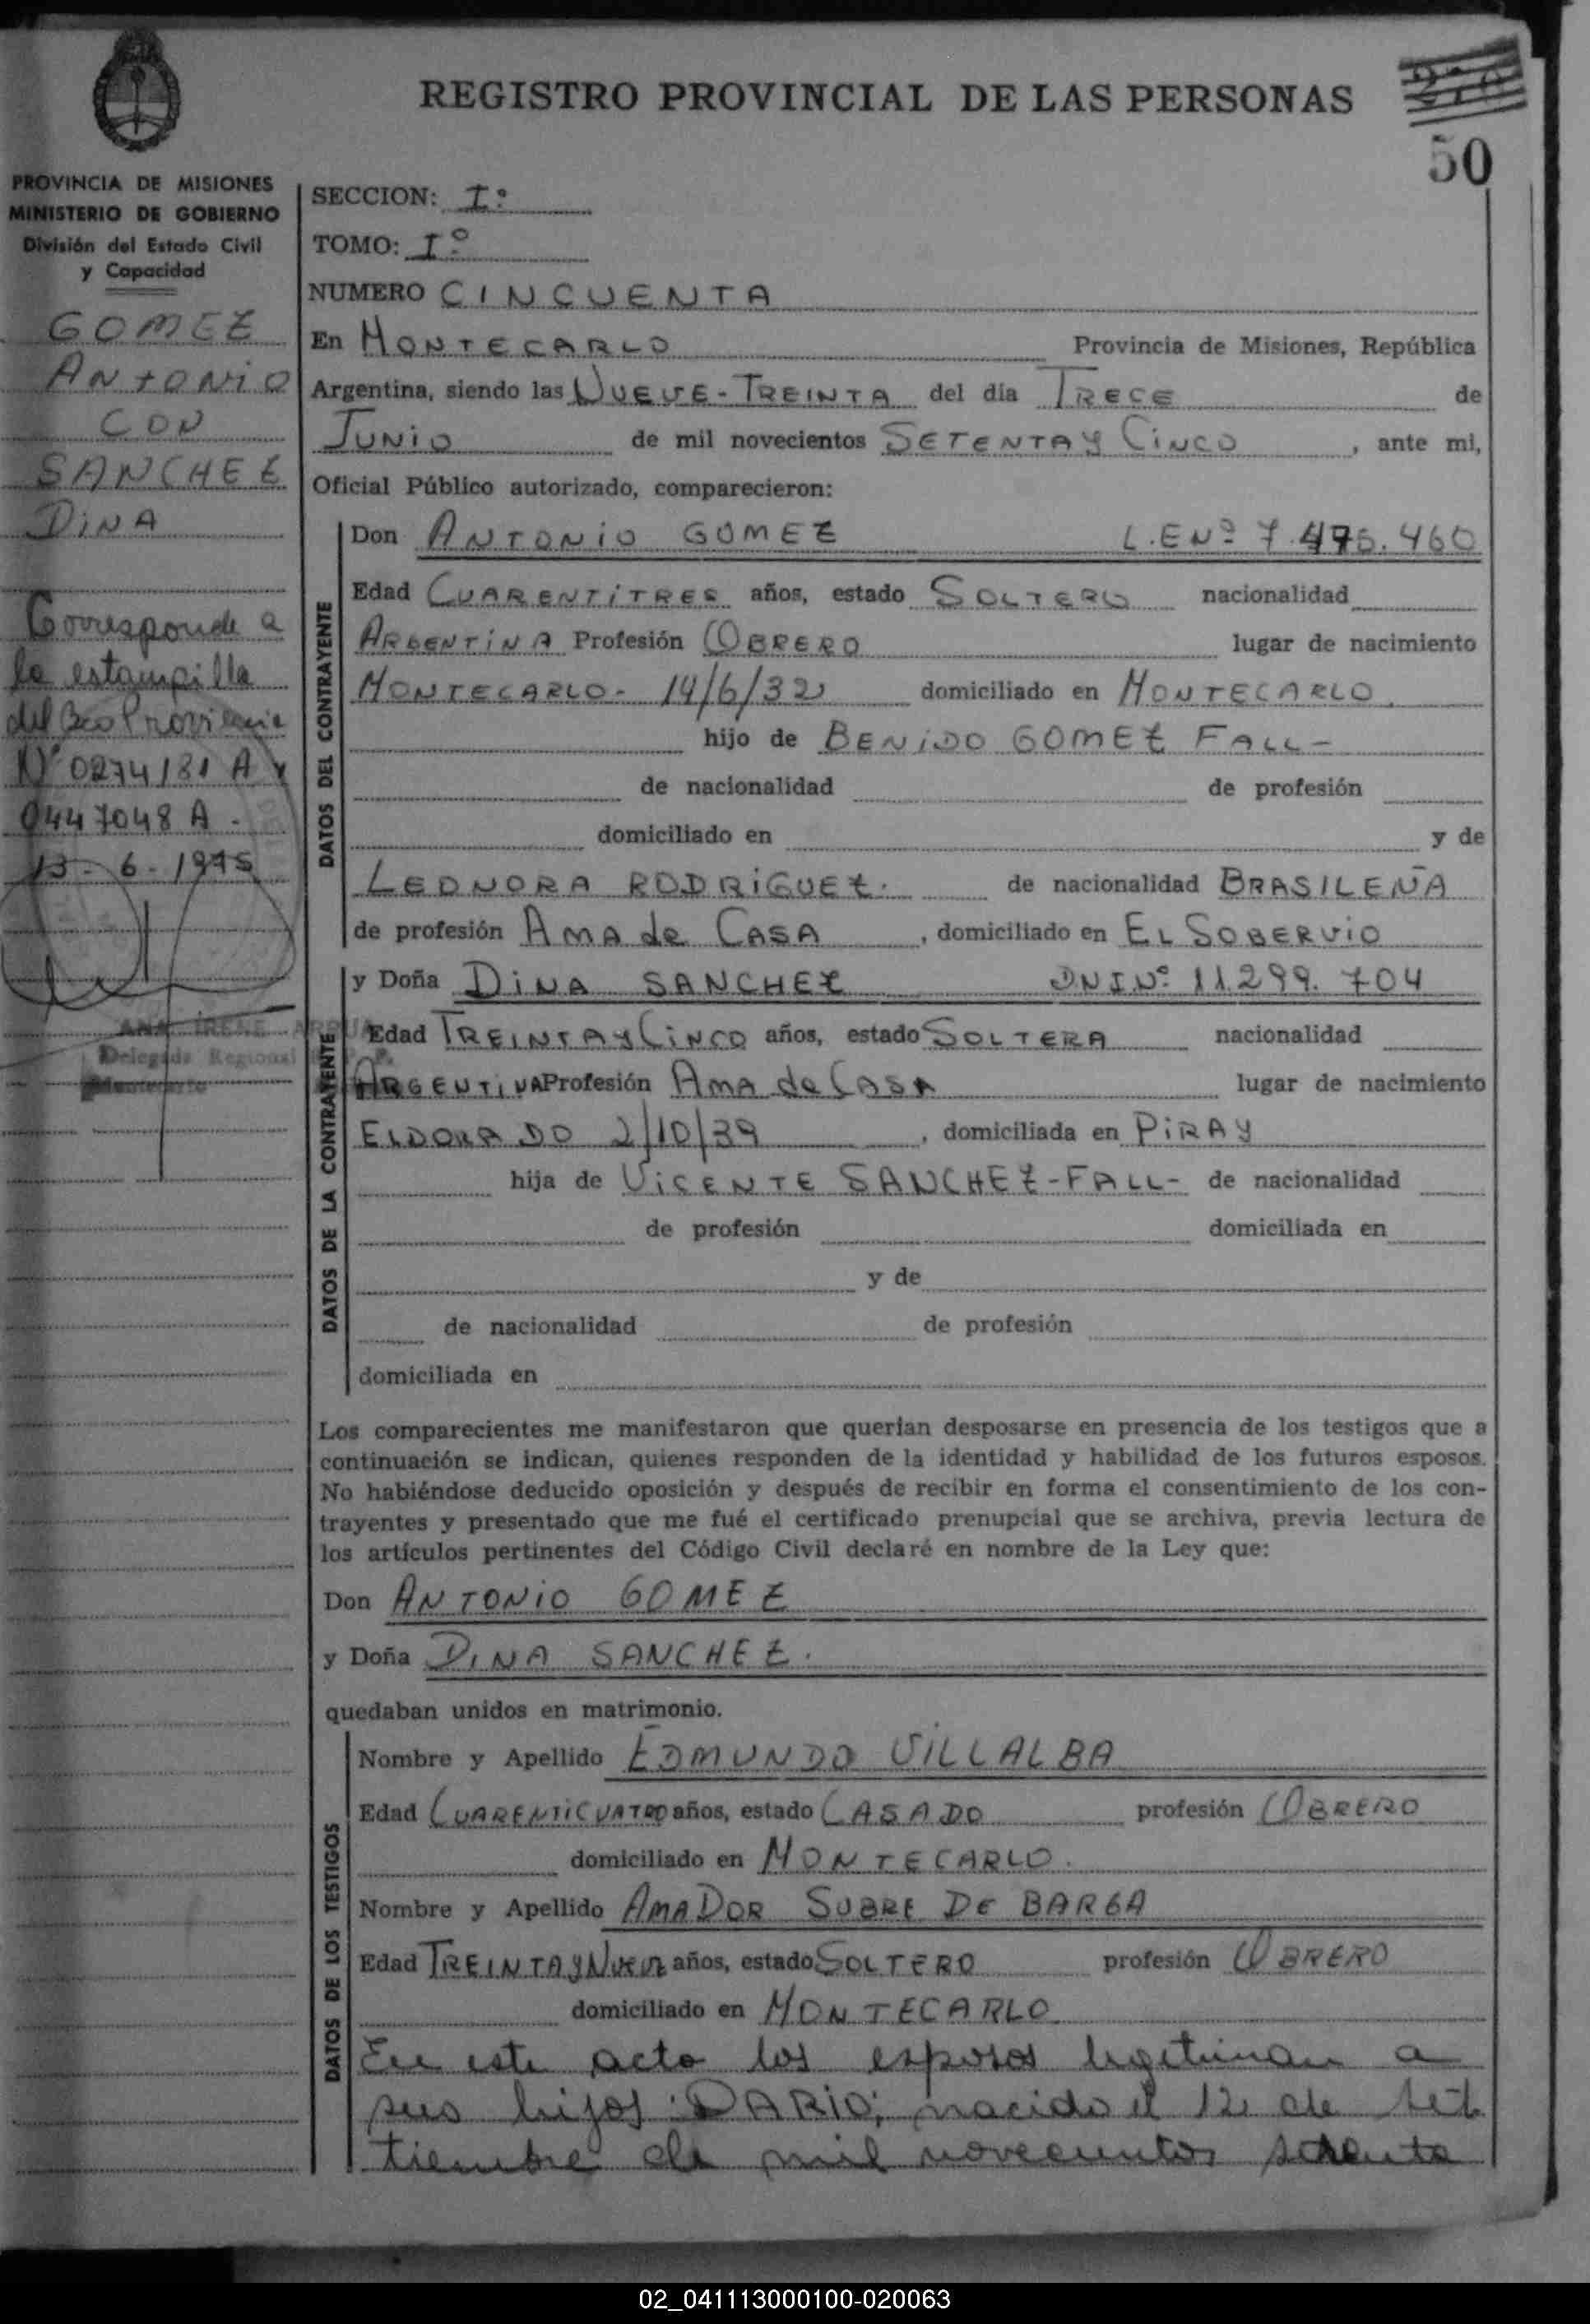 REGISTRO PROVINCIAL DE LAS PERSONAS
50
PROVINCIA DE MISIONES
MINISTERIO DE GOBIERNO
División del Estado Civil
y Capacidad
GOMEZ
ANTONIO
CON
SANCHEZ
DINA
Corresponde a
la estampilla
del Bco Provincia
Nº 0274181 A y
0447048 A.
13-6-1975
ANA IRENE ARRUA
Delegada Regional
Montecarlo
SECCION: Iº
TOMO: Iº
NUMERO CINCUENTA
En MONTECARLO Provincia de Misiones, República
Argentina, siendo las NUEVE-TREINTA del día TRECE de
JUNIO de mil novecientos SETENTA Y CINCO, ante mi,
Oficial Público autorizado, comparecieron:
DATOS DEL CONTRAYENTE
Don ANTONIO GOMEZ L.E Nº 7.475.460
Edad CUARENTITRES años, estado SOLTERO nacionalidad
ARGENTINA Profesión OBRERO lugar de nacimiento
MONTECARLO- 14/6/32 domiciliado en MONTECARLO.
hijo de BENIDO GOMEZ FALL-
de nacionalidad de profesión
domiciliado en y de
LEONORA RODRIGUEZ. de nacionalidad BRASILEÑA
de profesión AMA de CASA, domiciliado en EL SOBERVIO
DATOS DE LA CONTRAYENTE
y Doña DINA SANCHEZ DNI.Nº 11.299.704
Edad TREINTA Y CINCO años, estado SOLTERA nacionalidad
ARGENTINA Profesión AMA de CASA lugar de nacimiento
ELDORADO 2/10/39, domiciliada en PIRAY
hija de VICENTE SANCHEZ-FALL- de nacionalidad
de profesión domiciliada en
y de
de nacionalidad de profesión
domiciliada en
Los comparecientes me manifestaron que querían desposarse en presencia de los testigos que a
continuación se indican, quienes responden de la identidad y habilidad de los futuros esposos.
No habiéndose deducido oposición y después de recibir en forma el consentimiento de los con-
trayentes y presentado que me fué el certificado prenupcial que se archiva, previa lectura de
los artículos pertinentes del Código Civil declaré en nombre de la Ley que:
Don ANTONIO GOMEZ
y Doña DINA SANCHEZ.
quedaban unidos en matrimonio.
DATOS DE LOS TESTIGOS
Nombre y Apellido EDMUNDO VILLALBA
Edad CUARENTICUATRO años, estado CASADO profesión OBRERO
domiciliado en MONTECARLO.
Nombre y Apellido AMADOR SUBRE DE BARGA
Edad TREINTA Y NUEVE años, estado SOLTERO profesión OBRERO
domiciliado en MONTECARLO
En este acto los esposos legitiman a
sus hijos: DARIO; nacido el 12 de set
tiembre de mil novecientos
02_041113000100-020063